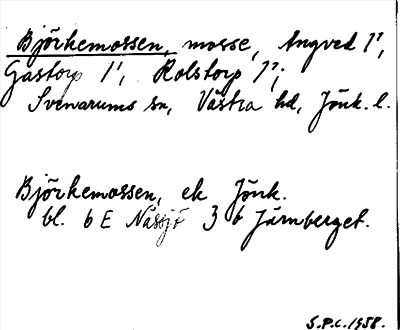 Björkemossen, mosse, Angved 1¹,
Gastorp 1¹, Rolstorp 1²;
Svenarums sn, Västra hd, Jönk. l.
Björkemossen, ek Jönk.
bl. 6 E Nässjö 3 b Järnberget.
S.P.C. 1958.